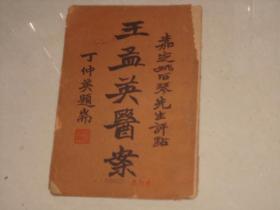 嘉定姚若琴先生評點
王孟英醫案
丁仲英題耑